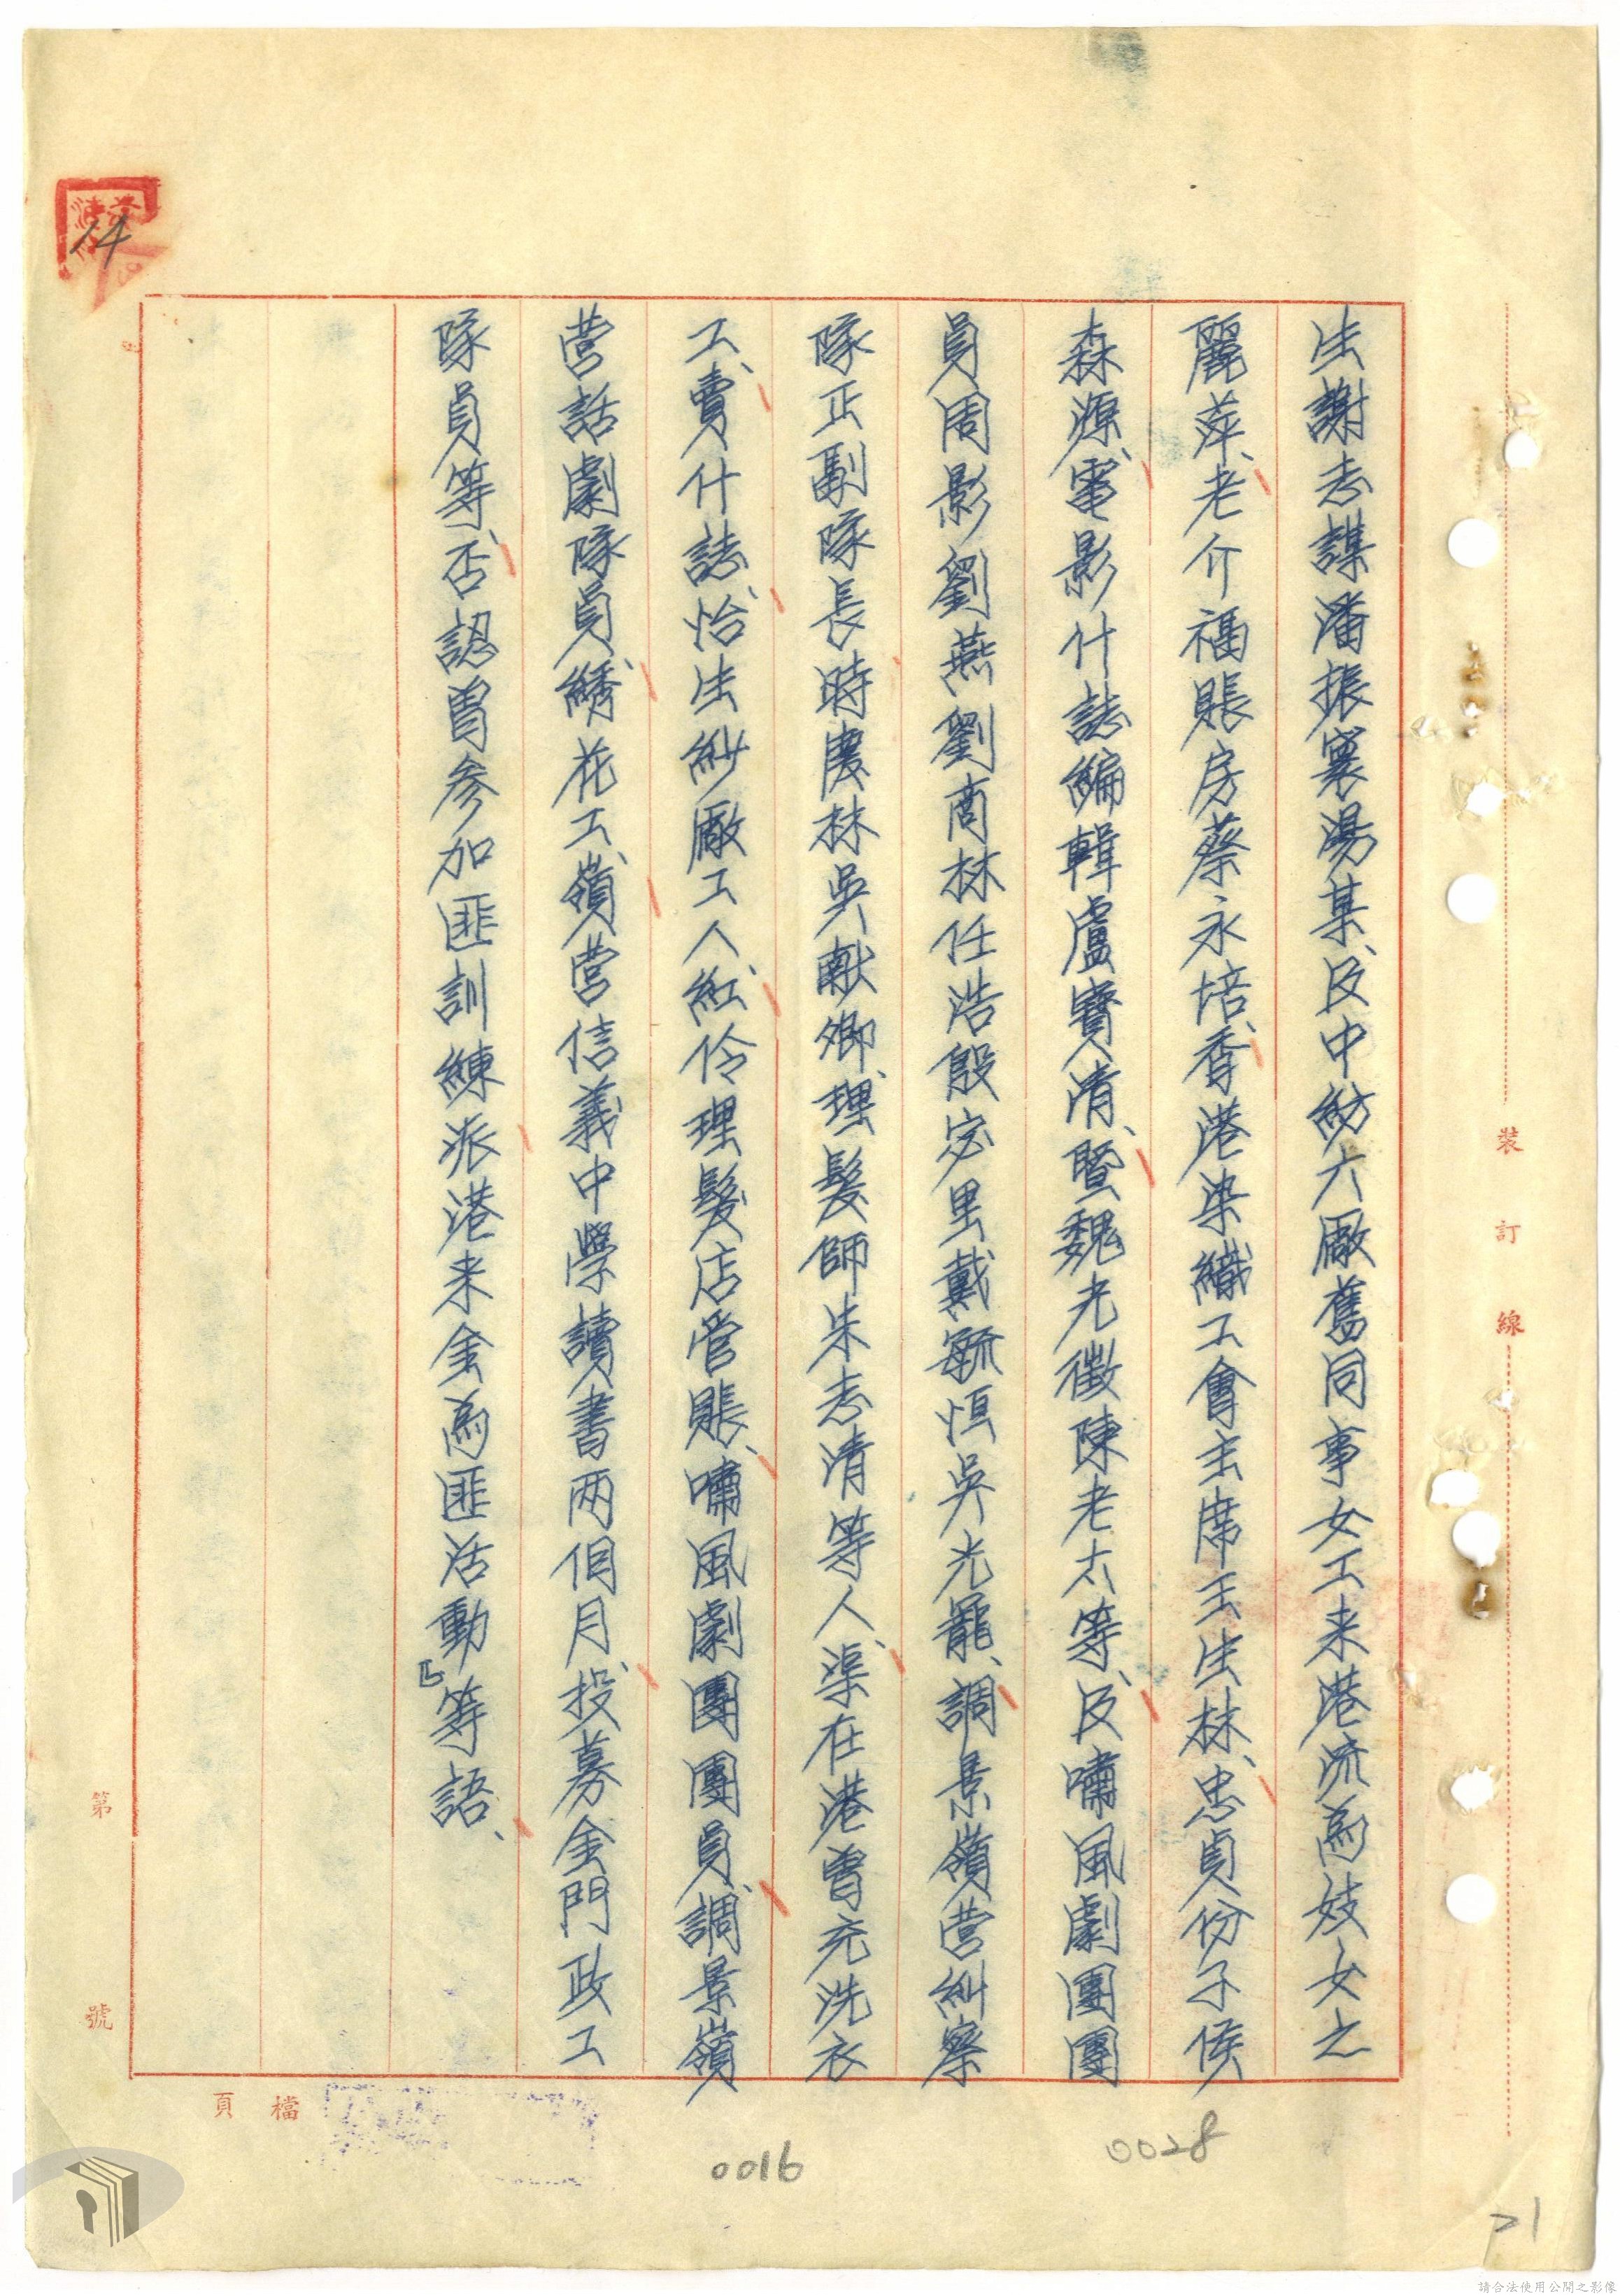 生謝志謀潘振寰湯某、及中紡六廠舊同事女工来港流為妓女之
麗萍、老介福賬房蔡永培、香港染織工會主席王生林、忠貞份子侯
森源、電影什誌編輯盧寶清、暨魏光徵陳老太等、及嘯風劇團團
員周影劉燕劉商林任浩殷宓里戴毓恒吳光羆、調景嶺营糾察
隊正副隊長時慶林吳献卿、理髮師朱志清等人、渠在港曾充洗衣
工、賣什誌、怡生紗廠工人、紅伶理髮店管賬、嘯風劇團團員、調景嶺
营話劇隊員、綉花工、嶺营信義中學讀書两個月、投募金門政工
隊員等、否認曾参加匪訓練派港来金為匪活動』等語、
裝訂線
第號
檔
頁
14
0016
0028
21
請合法使用公開之影像